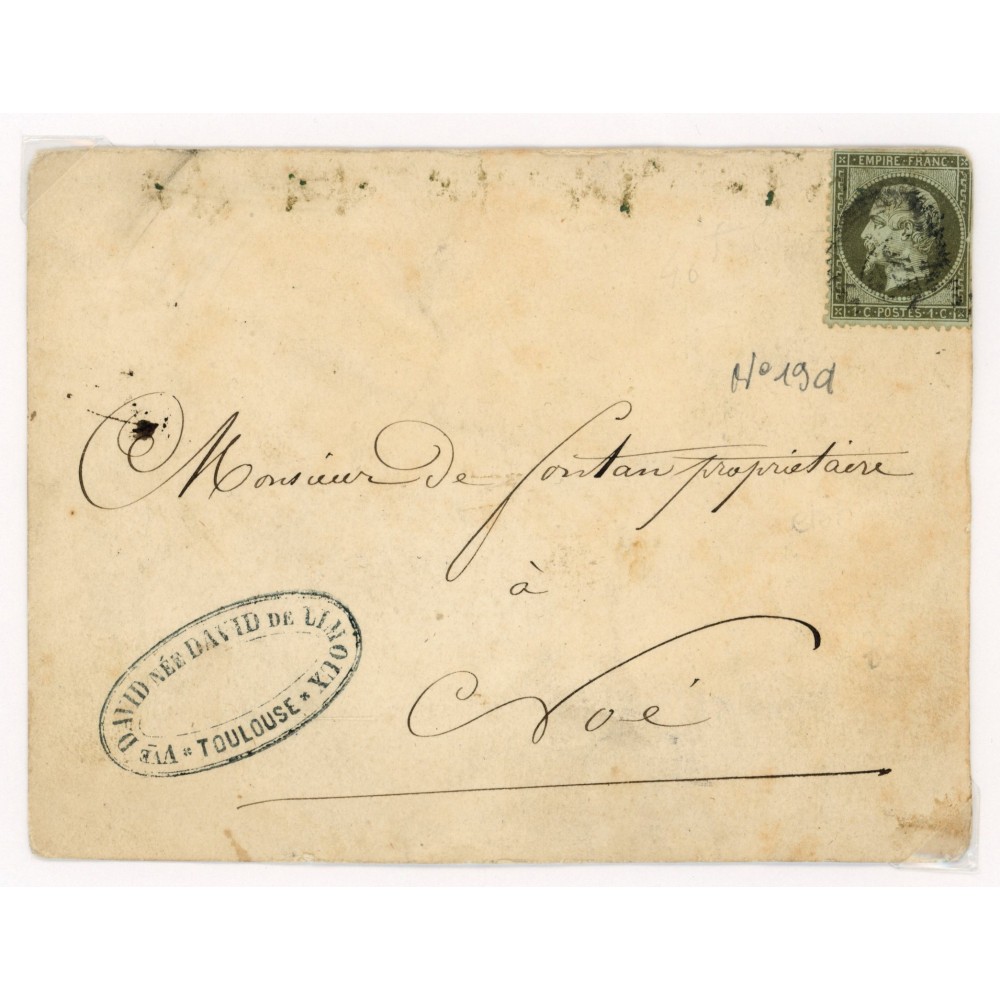 EMPIRE · FRANC ·
· 1 · C · POSTES · 1 · C ·
No 19d
Monsieur de Fontan propriétaire
à
Noé
VVE DAVID NÉE DAVID DE LIMOUX
* TOULOUSE *